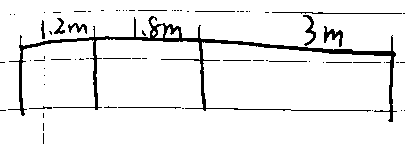 1.2m 1.8m 3m